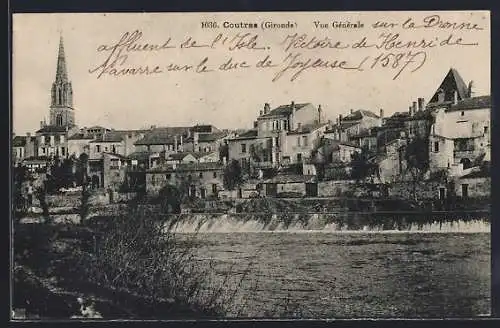 1036. Coutras (Gironde) Vue Générale sur la Dronne
affluent de l'Isle. Victoire de Henri de
Navarre sur le duc de Joyeuse (1587)